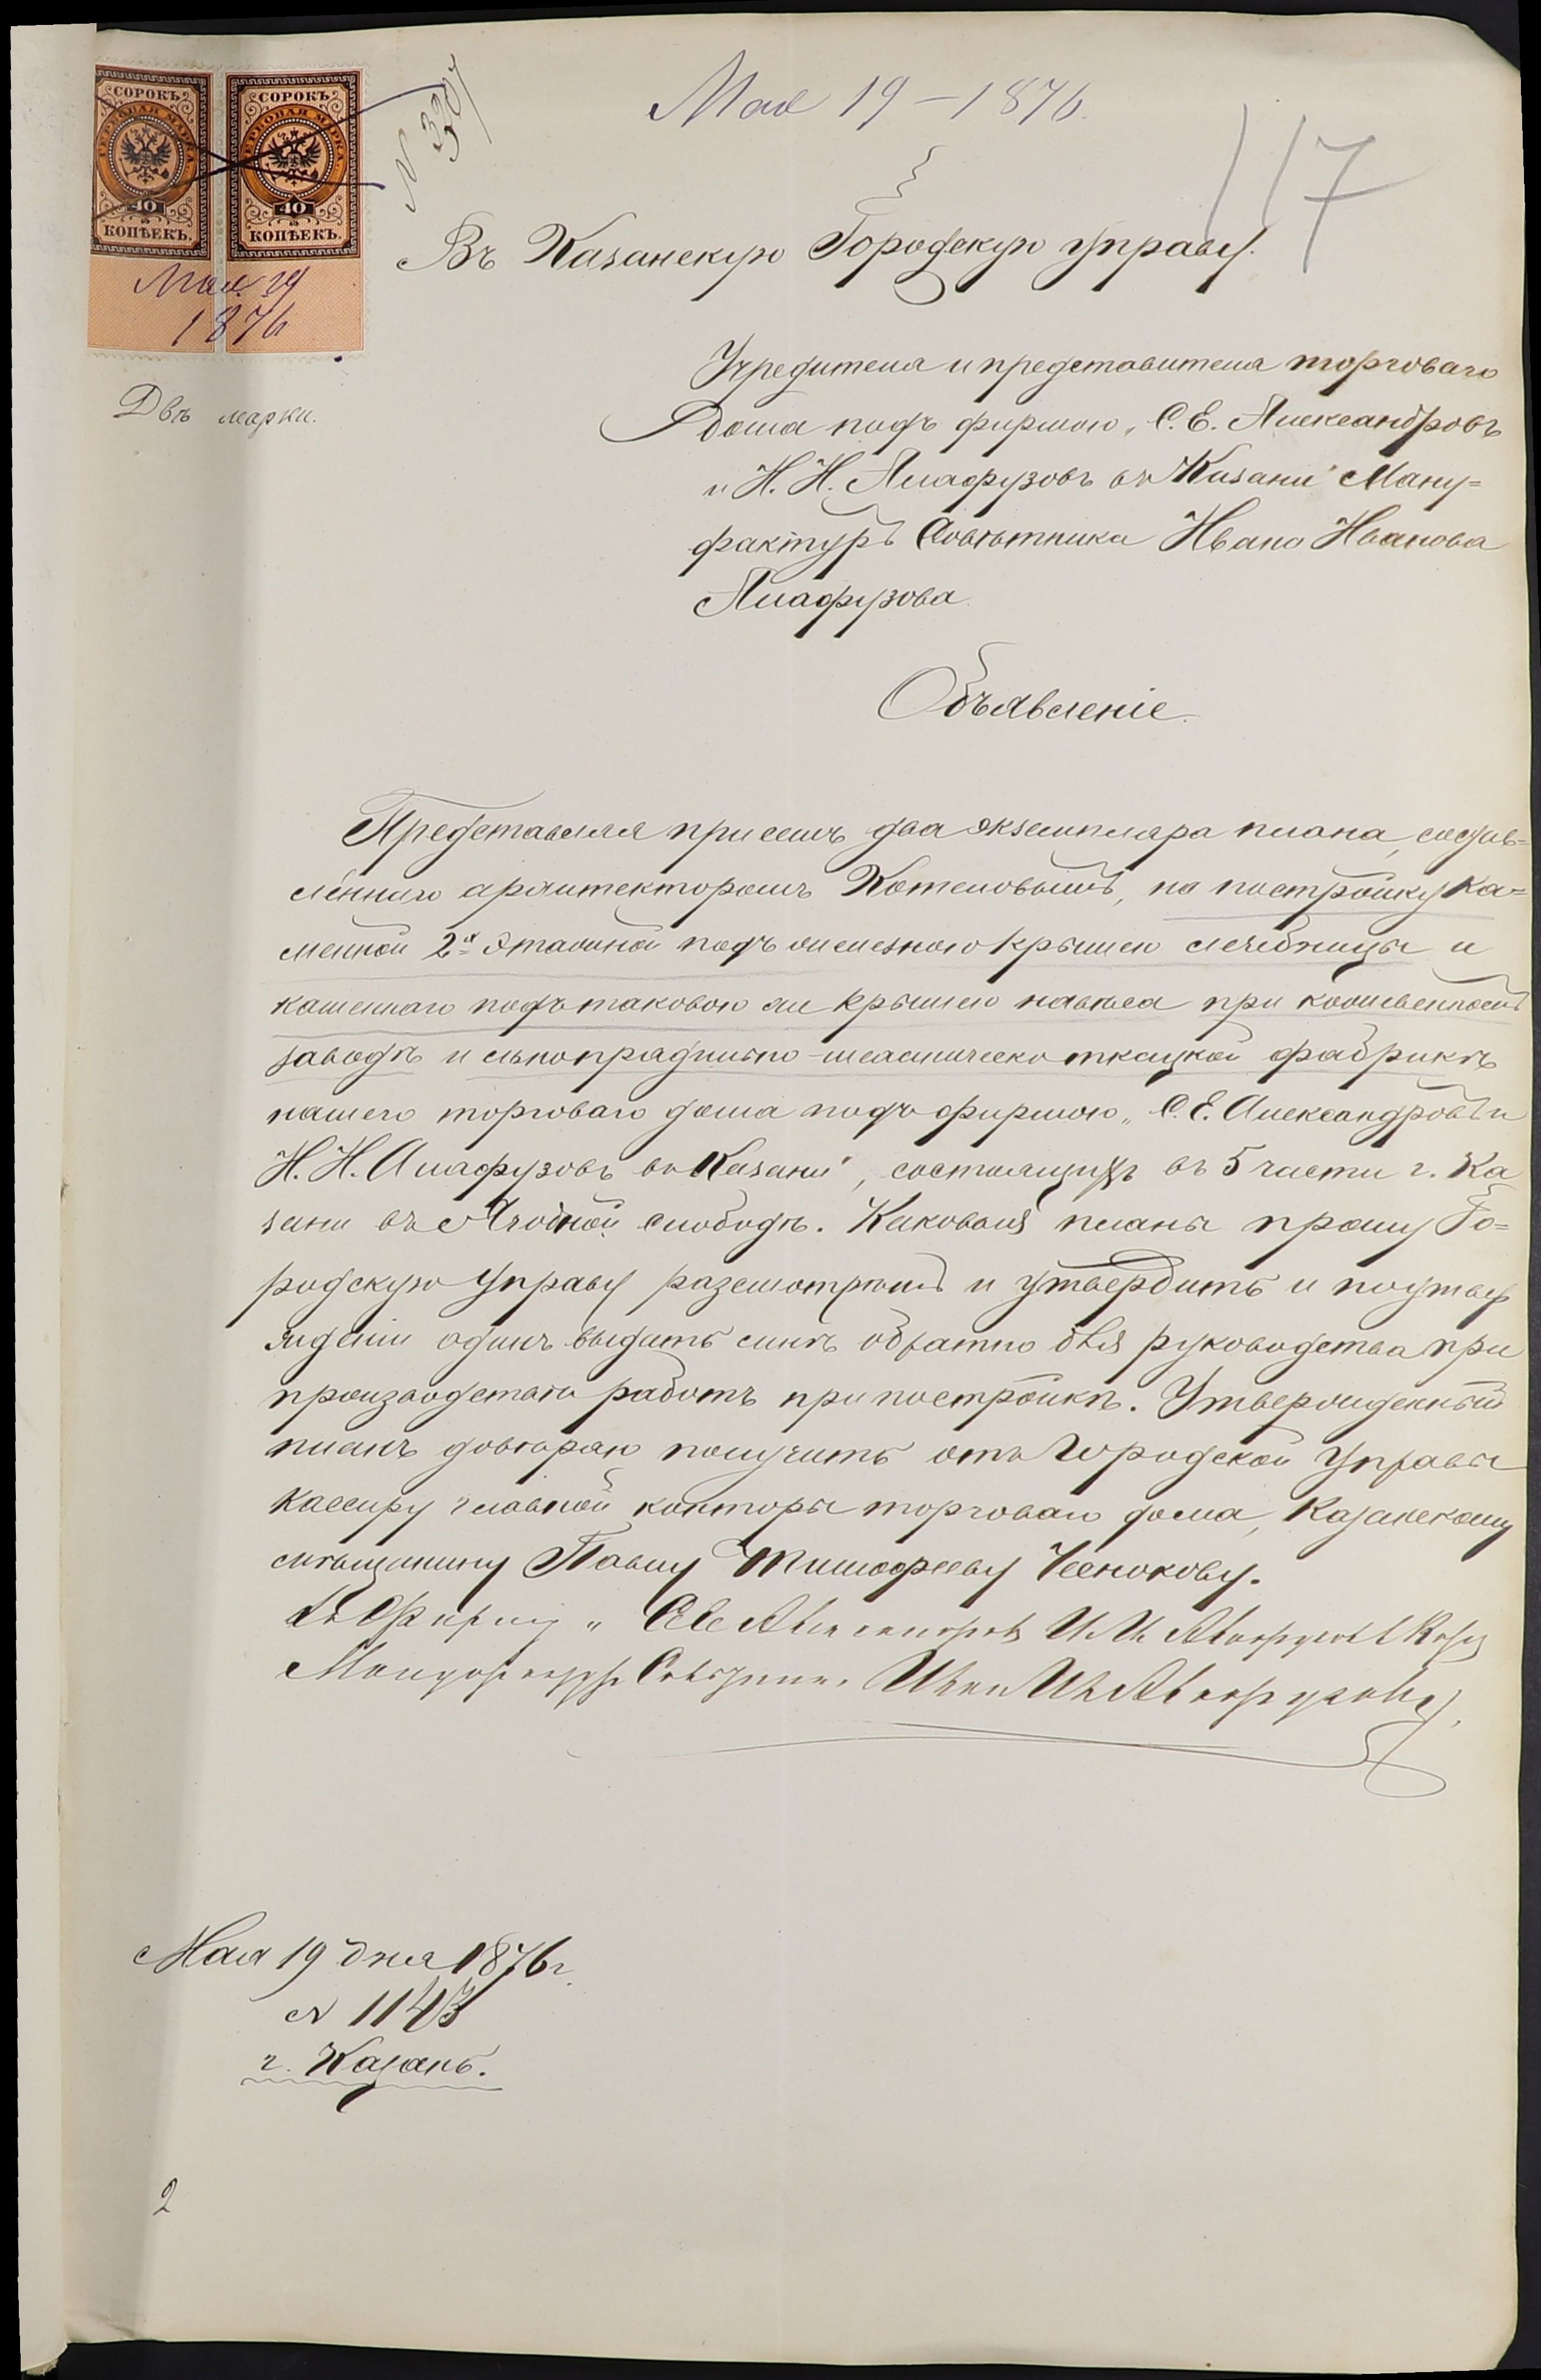 СОРОКЪ
ГЕРБОВАЯ МАРКА
40
КОПѢЕКЪ.
СОРОКЪ
ГЕРБОВАЯ МАРКА.
40
КОПѢЕКЪ.
Мая 19
1876
Двѣ марки.
N 3307
Мая 19 – 1876.
117
Въ Казанскую Городскую Управу.
Учредителя и представителя торговаго
дома подъ фирмою „С. Е. Александровъ
и И. И. Алафузовъ въ Казани" Ману=
фактуръ Совѣтника Ивана Иванова
Алафузова
Объявленіе.
Представляя при семъ два экземпляра плана, состав=
леннаго архитекторомъ Котеловымъ, на постройку ка=
менной 2х этажной подъ железною крышею лечебницы и
каменнаго подъ таковою же крышею навѣса при кожевенномъ
заводѣ и льнопрядильно-механическо ткацкой фабрикѣ
нашего торговаго дома подъ фирмою „С. Е. Александровъ и
И. И. Алафузовъ въ Казани", состоящихъ въ 5 части г. Ка
зани въ Ягодной слободѣ. Каковыя планы прошу Го=
родскую Управу разсмотрѣть и утвердить и по утвер
жденіи одинъ выдать мнѣ обратно для руководства при
производствѣ работъ при постройкѣ. Утвержденный
планъ довѣряю получить отъ Городской Управы
Кассиру главной конторы торговаго дома, Казанскому
мѣщанину Павлу Тимофееву Чеснокову.
„С Е Александровъ И. И. Алафузовъ в Каз
Мануфактуръ Совѣтникъ Иван Ив Алафузовъ.
Мая 19 дня 1876 г.
N 1143
г. Казань.
2